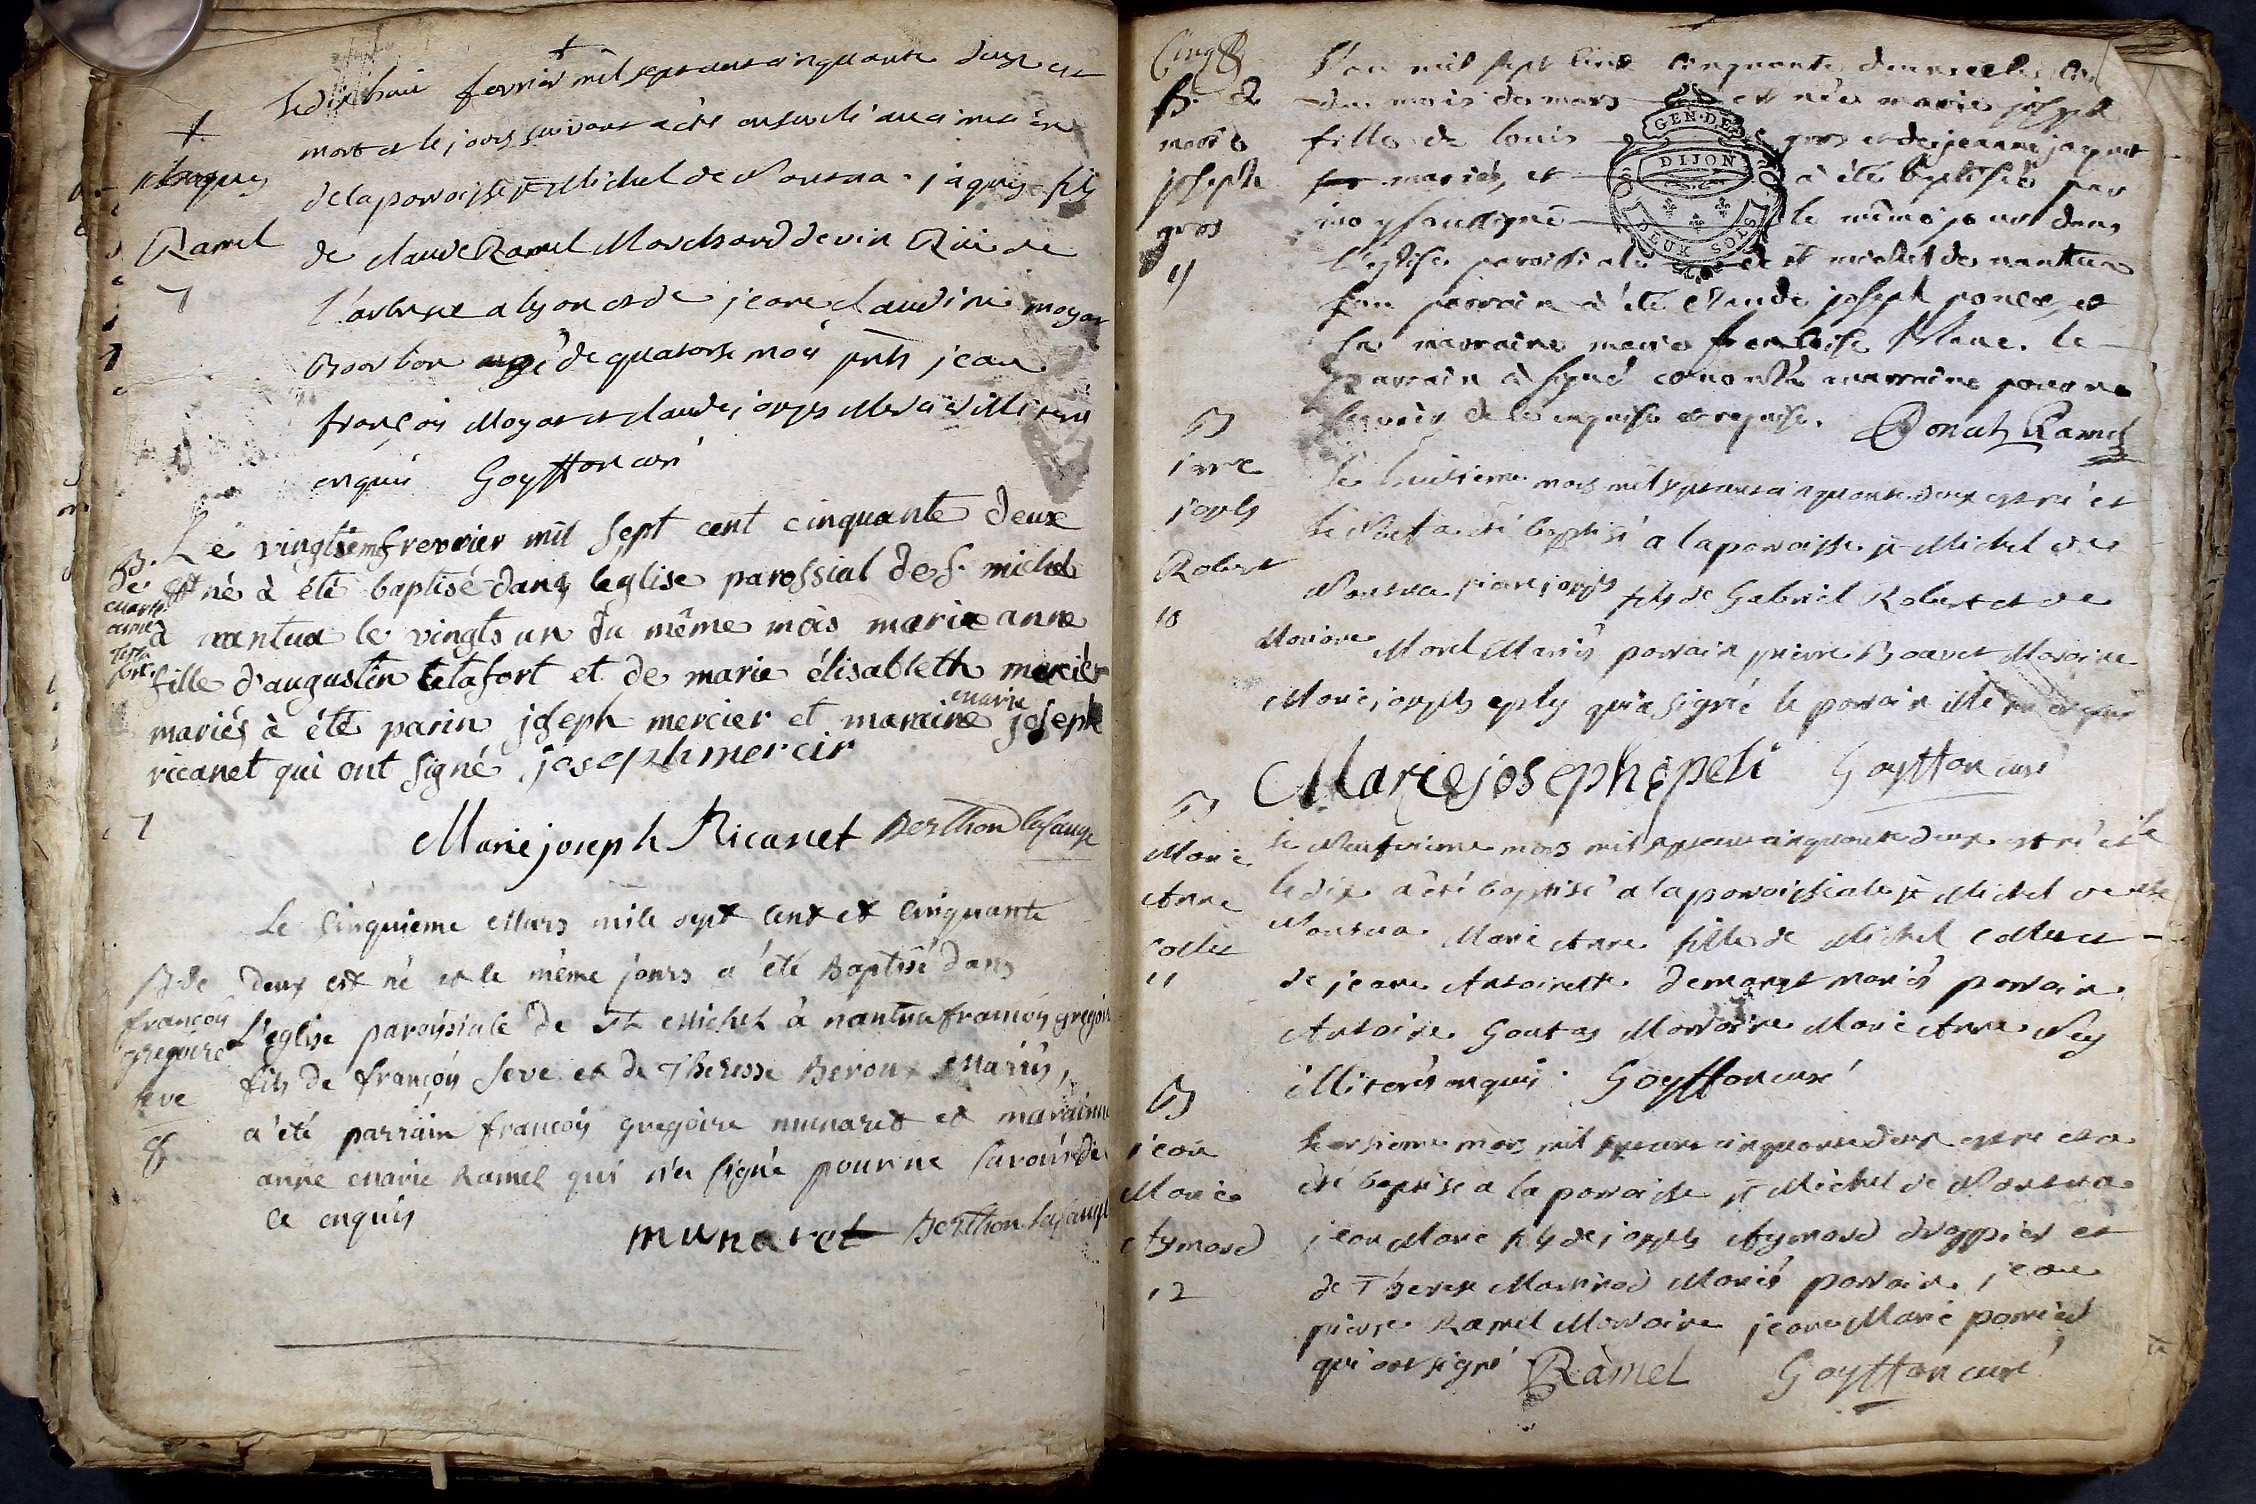 +
Le dix huit fevrier mil sept cent cinquante deux est
mort et le jour suivant a été enseveli au cimetiere
de la paroisse st Michel de Nantua jaques fils
de claude Ramel Marchand de vin Rüe de
l'arbresec a lyon et de jeane claudine moyar
Bourbon agé de quatorse mois pnts jean
françois Moyar et claude joseph Mercier illiterés
enquis Goyffon curé
+
jaques
Ramel
7
Lé vingtiem frevrier mil sept cent cinquante deux
est né à été baptisé dans leglise parossial de s. michel
à nantua le vingts un du même mois marie anne
fille d'augustin tetafort et de marie élisableth mercièr
mariés à été parin joseph mercier et maraine marie joseph
ricanet qui ont signé joseph mercir
B.
de
marie
anne
teta
fort
7
Marie joseph Ricanet Berthon lafauge
Le Cinquieme Mars mile sept cent et Cinquante
deux est né et le même jours a été Baptisé dans
L'eglise paroissiale de St Michel à nantua françois gregoire
fils de françois Seve et de Theresse Beroux Mariés,
a été parrain françois gregoire munaret et marainne
anne marie Ramel qui n'a signé pour ne Savoir de
Ce enquis
B de
françois
gregoire
seve
8
munaret Berthon lafauge
Cinq
L'an mil sept cent cinquante deux et le
du mois de mars est née marie joseph
fille de louis gros et de jeanne jaquet
mariés, et à été baptisée par
moy soussigné le même jour dans
l'eglise paroissiale de st michel de nantua
son parrain à été Claude joseph poncet, et
sa marraine marie francoise Blanc. le
parrain à signé et non la marraine pour ne
scavoir de ce enquise et requise. Donat Ramel
B. de
marie
joseph
gros
9
GEN. DE
DIJON
DEUX SOLS
Le huitieme mars mil sept cent cinquante deux est né et
le Neuf a été baptisé a la paroisse st Michel de
Nantua pierre joseph fils de Gabriel Robert et de
Mariane Morel Mariés parrain pierre Bouvet Maraine
Marie joseph eply qui a signé le parrain illiteré enquis
B
pierre
joseph
Robert
10
Marie joseph epeli Goyffon curé
le Neufvieme mars mil sept cent cinquante deux est né et
le dix a été baptisé a la paroissiale st Michel de
Nantua Marie Anne fille de Michel Collet et
de jeane Antoinette demaret mariés parrain
Antoine Goutas Marraine Marie Anne Ney
illiterés enquis. Goyffon curé
B
Marie
Anne
Collet
11
le onsieme mars mil sept cent cinquante deux est né et a
été baptisé a la paroisse st Michel de Nantua
jean Marie fils de joseph Aymard drappier et
de Therese Martinod Mariés parrain jean
pierre Ramel Marraine jeane Marie perrier
qui ont signé Ramel Goyffon curé
B
jean
Marie
Aymard
12